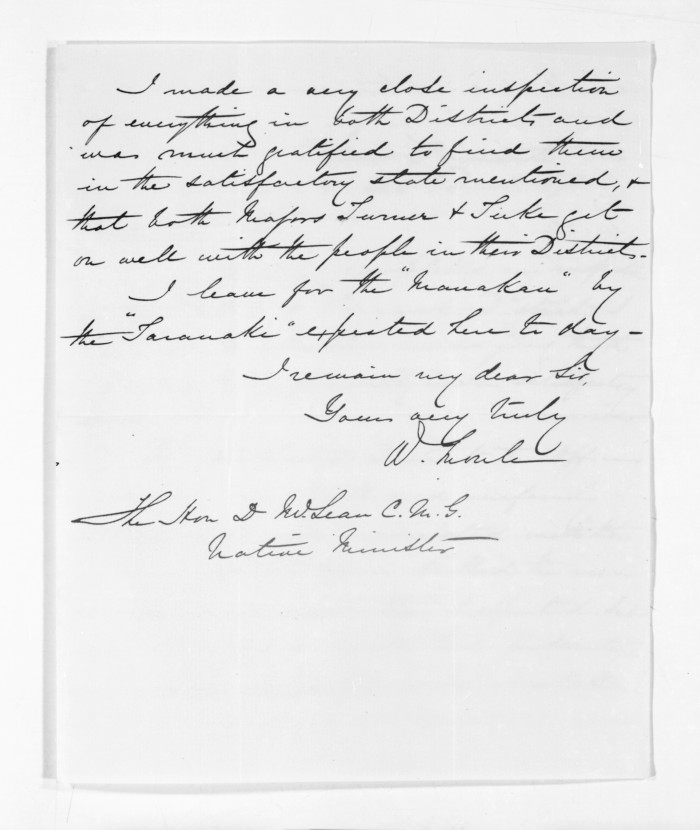 I made a very close inspection
of everything in both Districts and
was much gratified to find them
in the satisfactory state mentioned, &
that both Majors Turner & Tuke get
on well with the people in their Districts.
I leave for the "Manakau" by
the "Taranaki" expected here to day –
I remain my dear Sir,
Yours very truly
W. Moule
The Hon D McLean C.M.G.
Native Minister